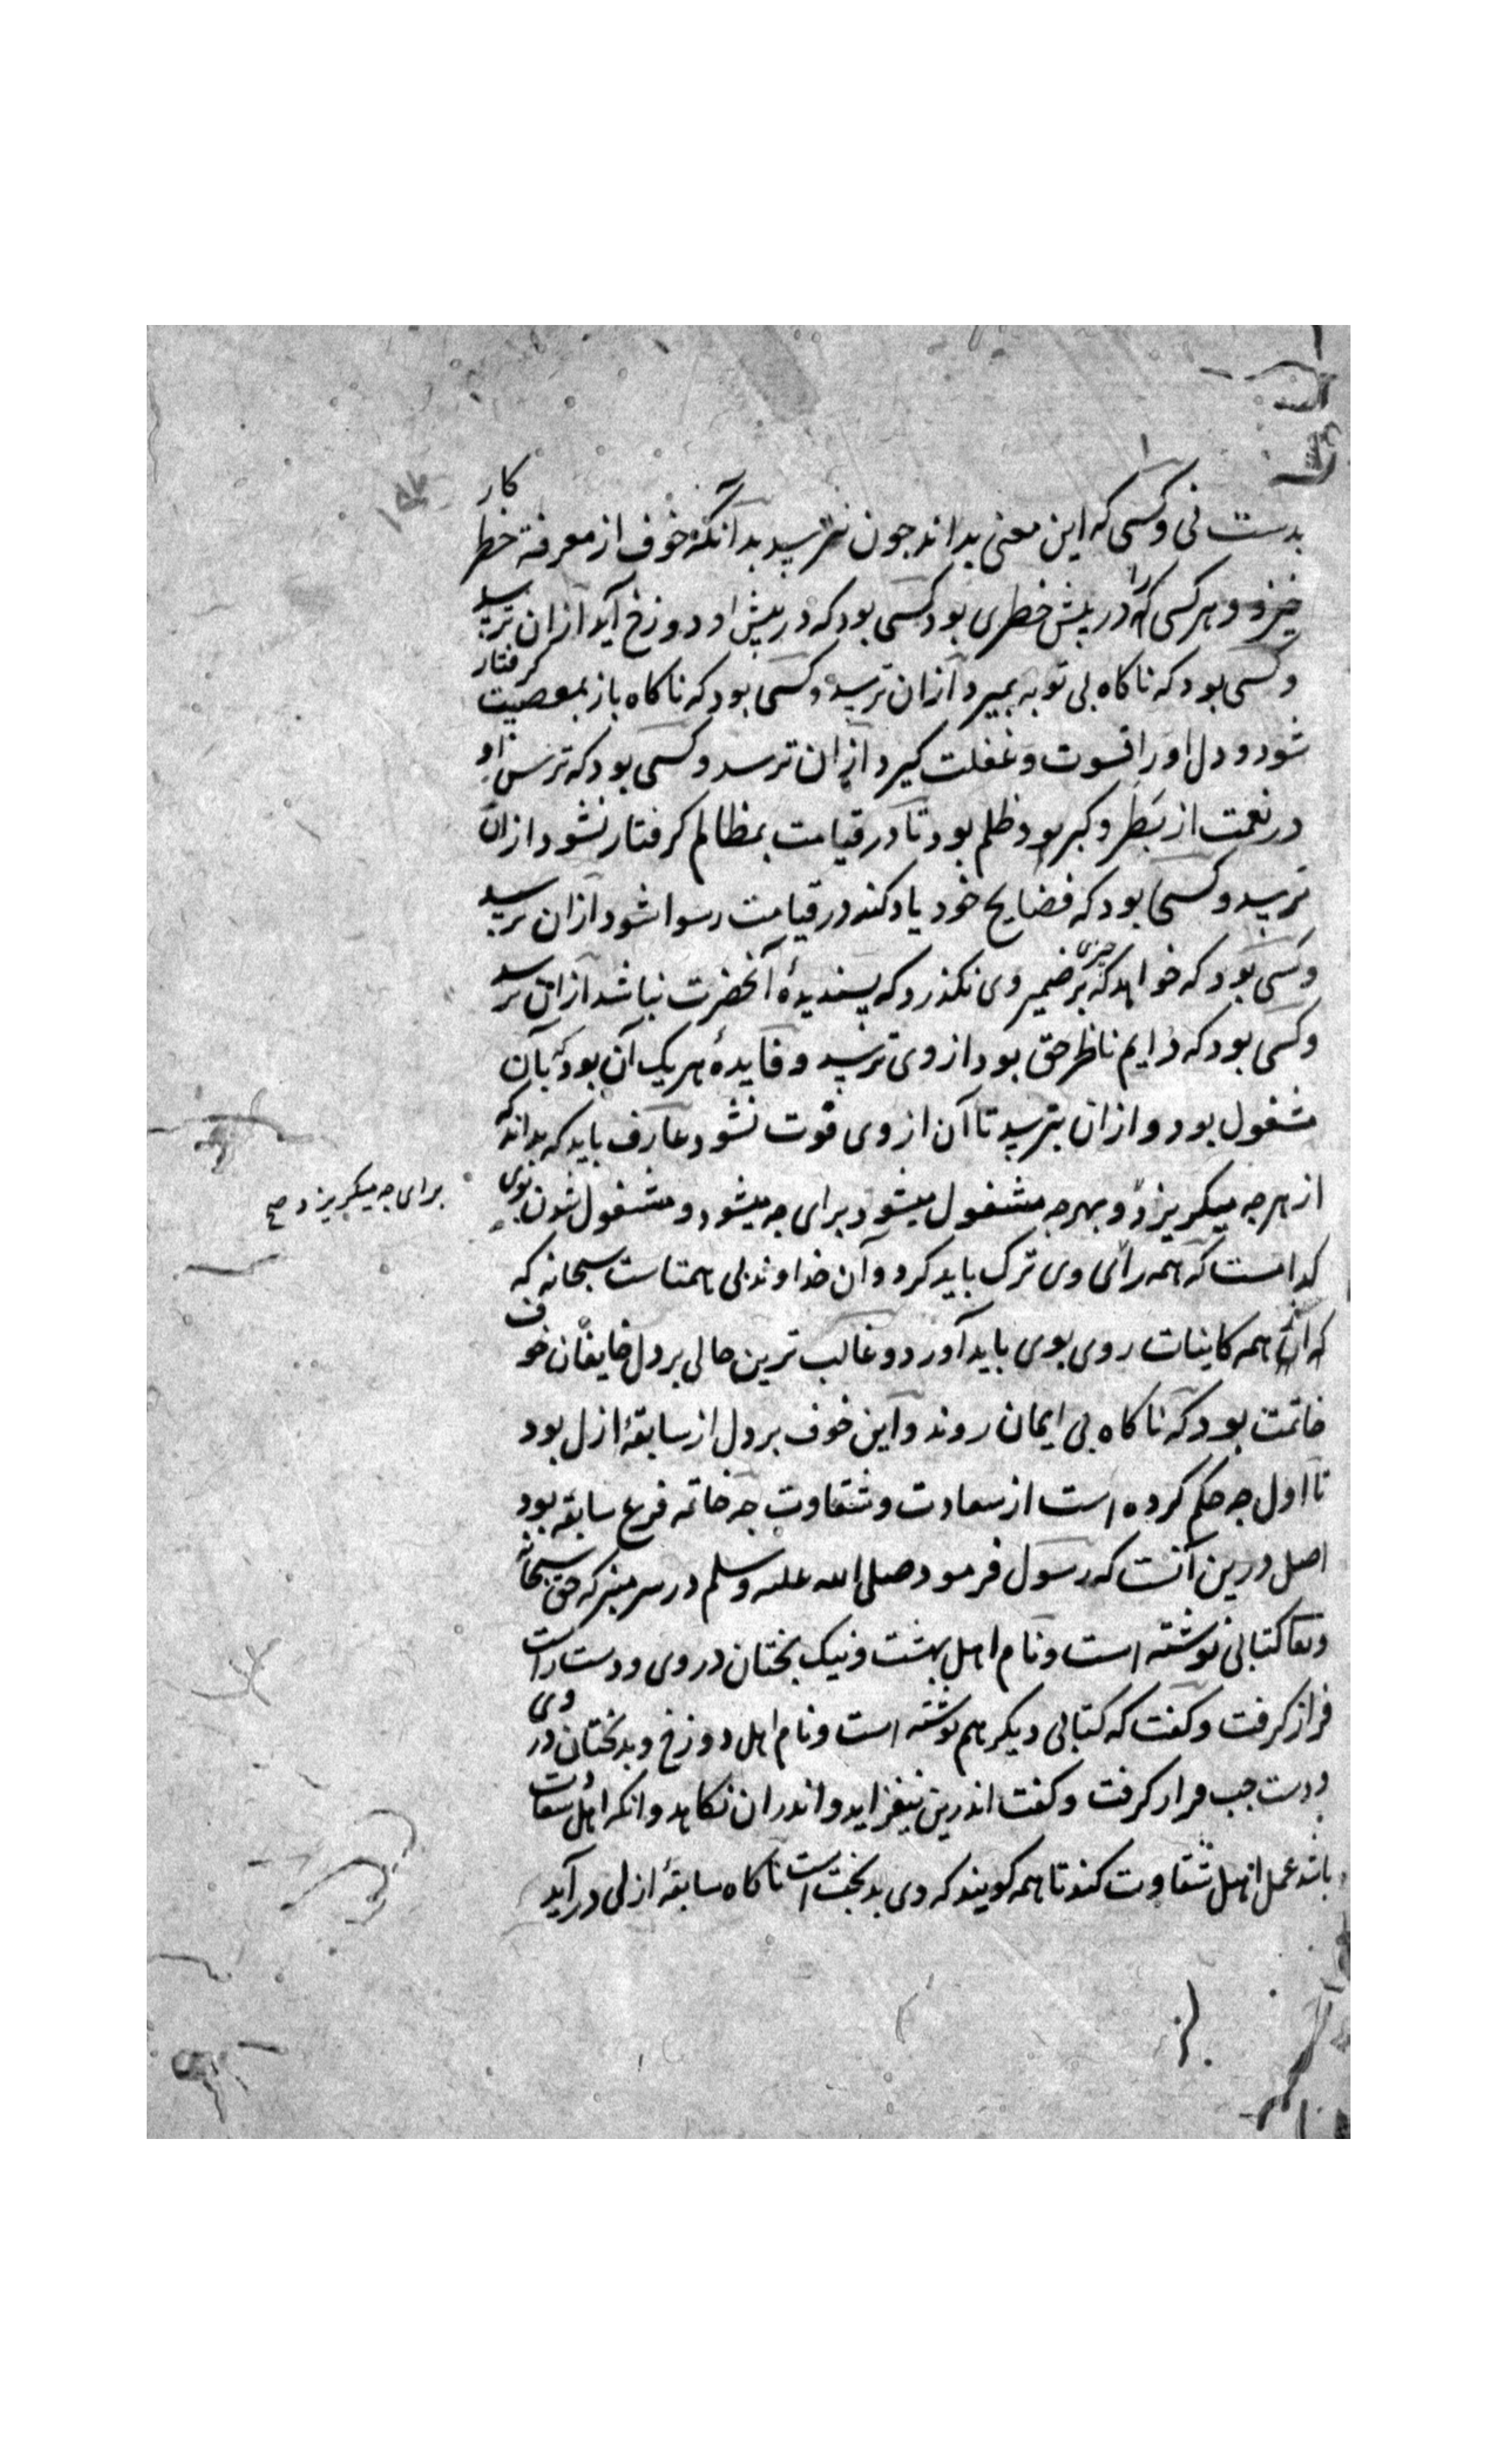 بدست نی و کسی که این معنی بداند چون نترسد بدآنکه خوف از معرفة خطر کار
خیزد و هر کسی که را در پیش خطری بود کسی بود که در پیش او دوزخ آید از آن ترسد
و کسی بود که ناکاه بی توبه بمیرد از آن ترسد و کسی بود که ناکاه باز بمعصیت کرفتار
شود و دل او را قسوت و غفلت کیرد از آن ترسد و کسی بود که ترس او
در نعمت از بَطَر و کبر بود ظلم بود تا در قیامت بمظالم کرفتار نشود از آن
ترسد و کسی بود که فضایح خود یاد کند در قیامت رسوا شود از آن ترسد
و کسی بود که خواهد که چیزی بر ضمیر وی نکذرد که پسندیدهٔ آنحضرت نباشد از آن ترسد
و کسی بود که دایم ناظر حق بود از وی ترسد و فایدهٔ هر یک آن بود که بآن
مشغول بود و از آن بترسد تا آن از وی فوت نشود عارف باید که بداند که
از هر چه میکریزد و بهر چه مشغول میشود برای چه میشود و مشغول شدن بوی
برای چه میکریزد صح
کدامست که همه رای وی ترک باید کرد و آن خداوند بی همتاست سبحانه که
که از همه کاینات روی بوی باید آورد و غالب ترین حالی بر دل خایفان خوف
خاتمت بود که ناکاه بی ایمان روند و این خوف بر دل از سابقهٔ ازل بود
تا اول چه حکم کرده است از سعادت و شقاوت چه خاتمه فرع سابقه بود
اصل درین آنست که رسول فرمود صلی الله علیه وسلم در سر منبر که حق سبحانه
وتعا کتابی نوشته است و نام اهل بهشت و نیک بختان در وی و دست راست
فراز کرفت و کفت که کتابی دیکر هم نوشته است و نام اهل دوزخ و بدبختان در وی
و دست چپ فراز کرفت و کفت اندرین نیفزاید و اندران نکاهد و انکه اهل سعادت
باشد عمل اهل شقاوت کند تا همه کویند که وی بدبخت است ناکاه سابقهٔ ازلی درآید